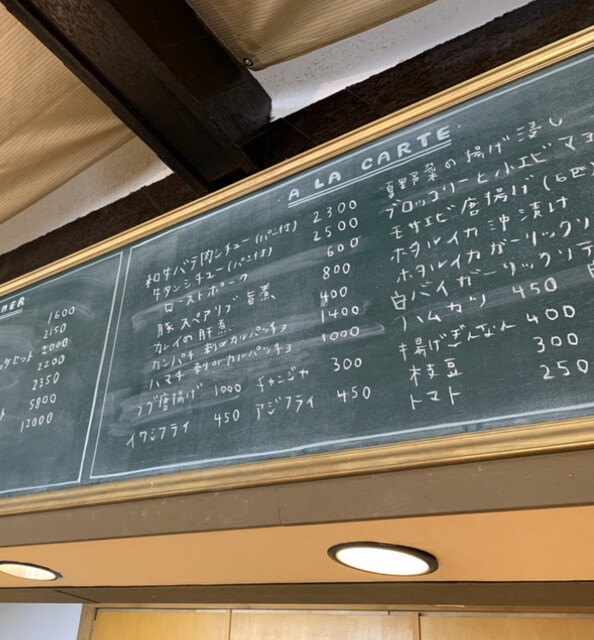 NER
1600
2150
ケセット 2000
2200
2350
5800
12000
A LA CARTE
和牛バラ肉シチュー(パン付) 2300
牛タンシチュー(パン付) 2500
ローストポーク 600
豚スペアリブ旨煮 800
カレイの肝煮 400
カンパチ刺orカルパッチョ 1400
ハマチ刺orカルパッチョ 1000
フグ唐揚げ 1000 チャンジャ 300
イワシフライ 450 アジフライ 450
夏野菜の揚げ浸し
ブロッコリーと小エビマヨ
モサエビ唐揚げ(6匹)
ホタルイカ沖漬け
ホタルイカガーリックソ
白バイガーリックソテ
ハムカツ 450
揚げぎんなん 400
枝豆 300
トマト 250